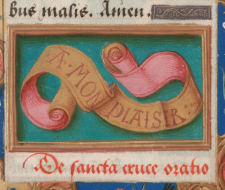 bus malis. Amen.
A · MON PLAISIR
De sancta cruce oratio